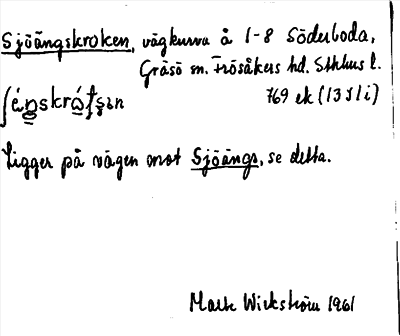 Sjöängskroken, vägkurva å 1-8 Söderboda,
Gräsö sn. Frösåkers hd. Sthlms l.
769 ek (13 J 1 i)
Ligger på vägen mot Sjöängs, se detta.
Mats Wickström 1961